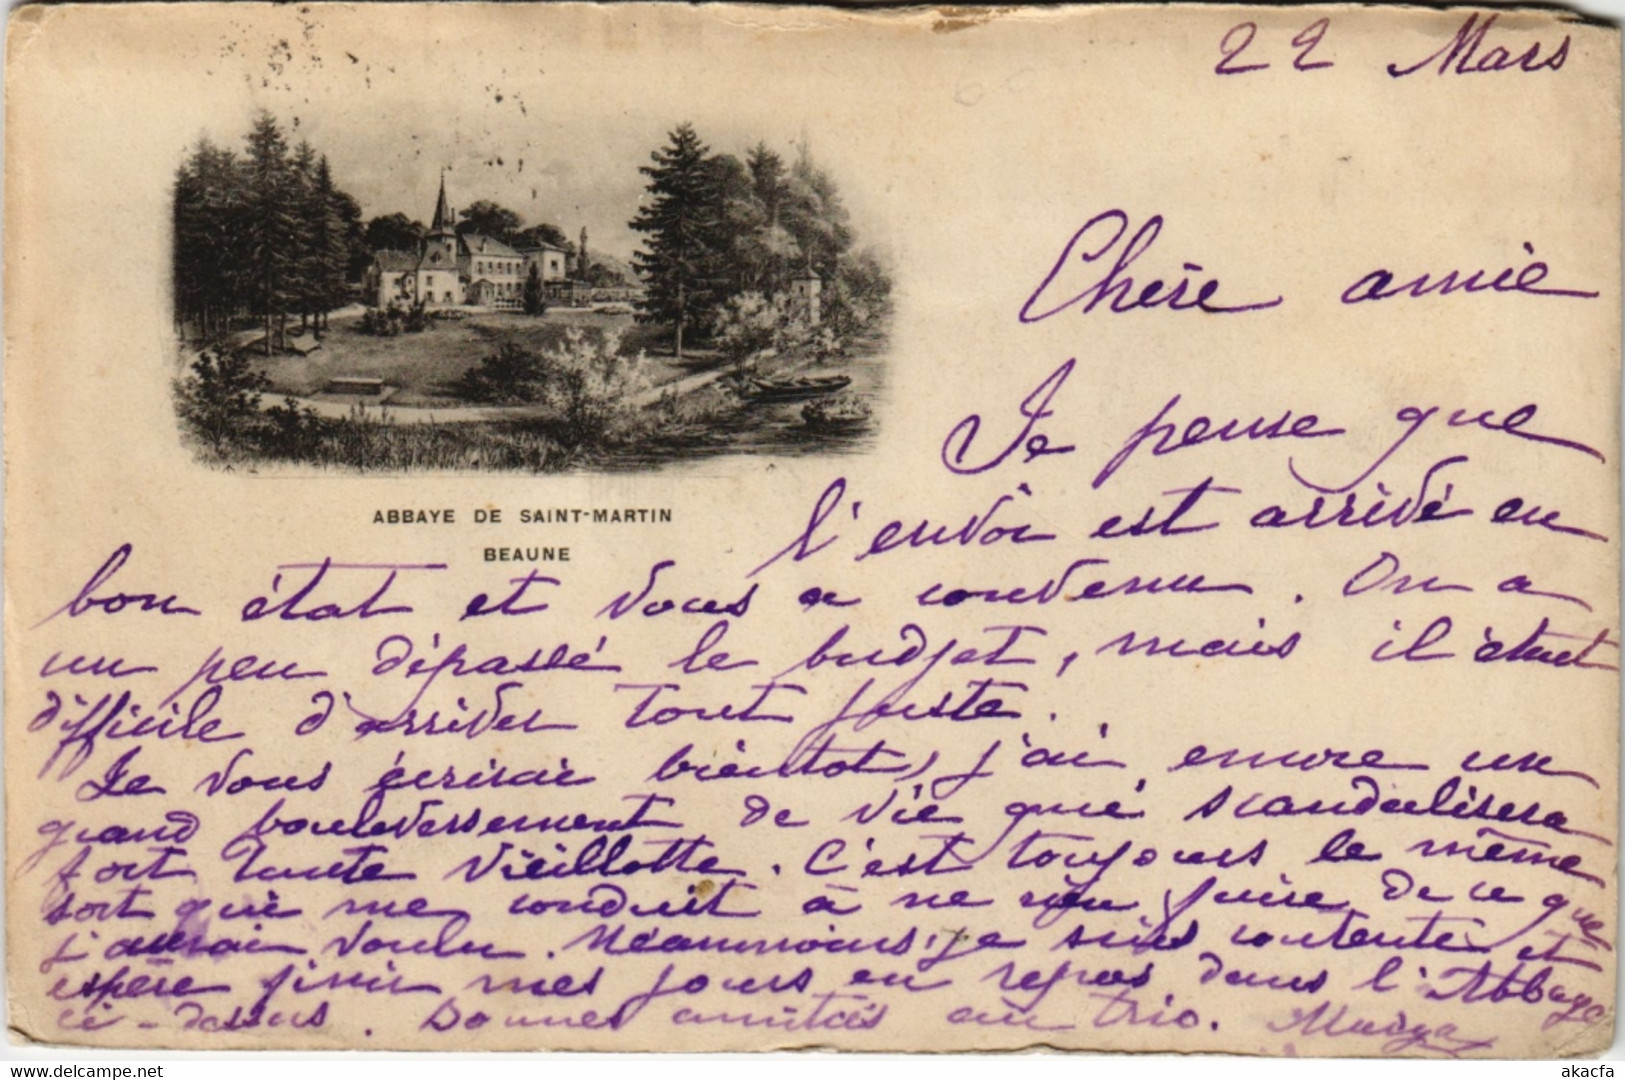 22 Mars
Chère amie
Je pense que
l'envoi est arrivé en
ABBAYE DE SAINT-MARTIN
BEAUNE
bon état et vous a convenu. On a
un peu dépassé le budjet, mais il était
difficile d'arriver tout juste.
Je vous écrirai bientot, j'ai encore un
grand boulversement de vie qui scandalisera
fort tante Vieillotte. C'est toujours le même
sort qui me conduit à ne rien faire de ce que
j'aurai voulu. Néammoins, je suis contente et
espère finir mes jours en repos dans l'Abbaye
ci-dessus. Bonnes amitiés au trio.
delcampe.net
akacfa